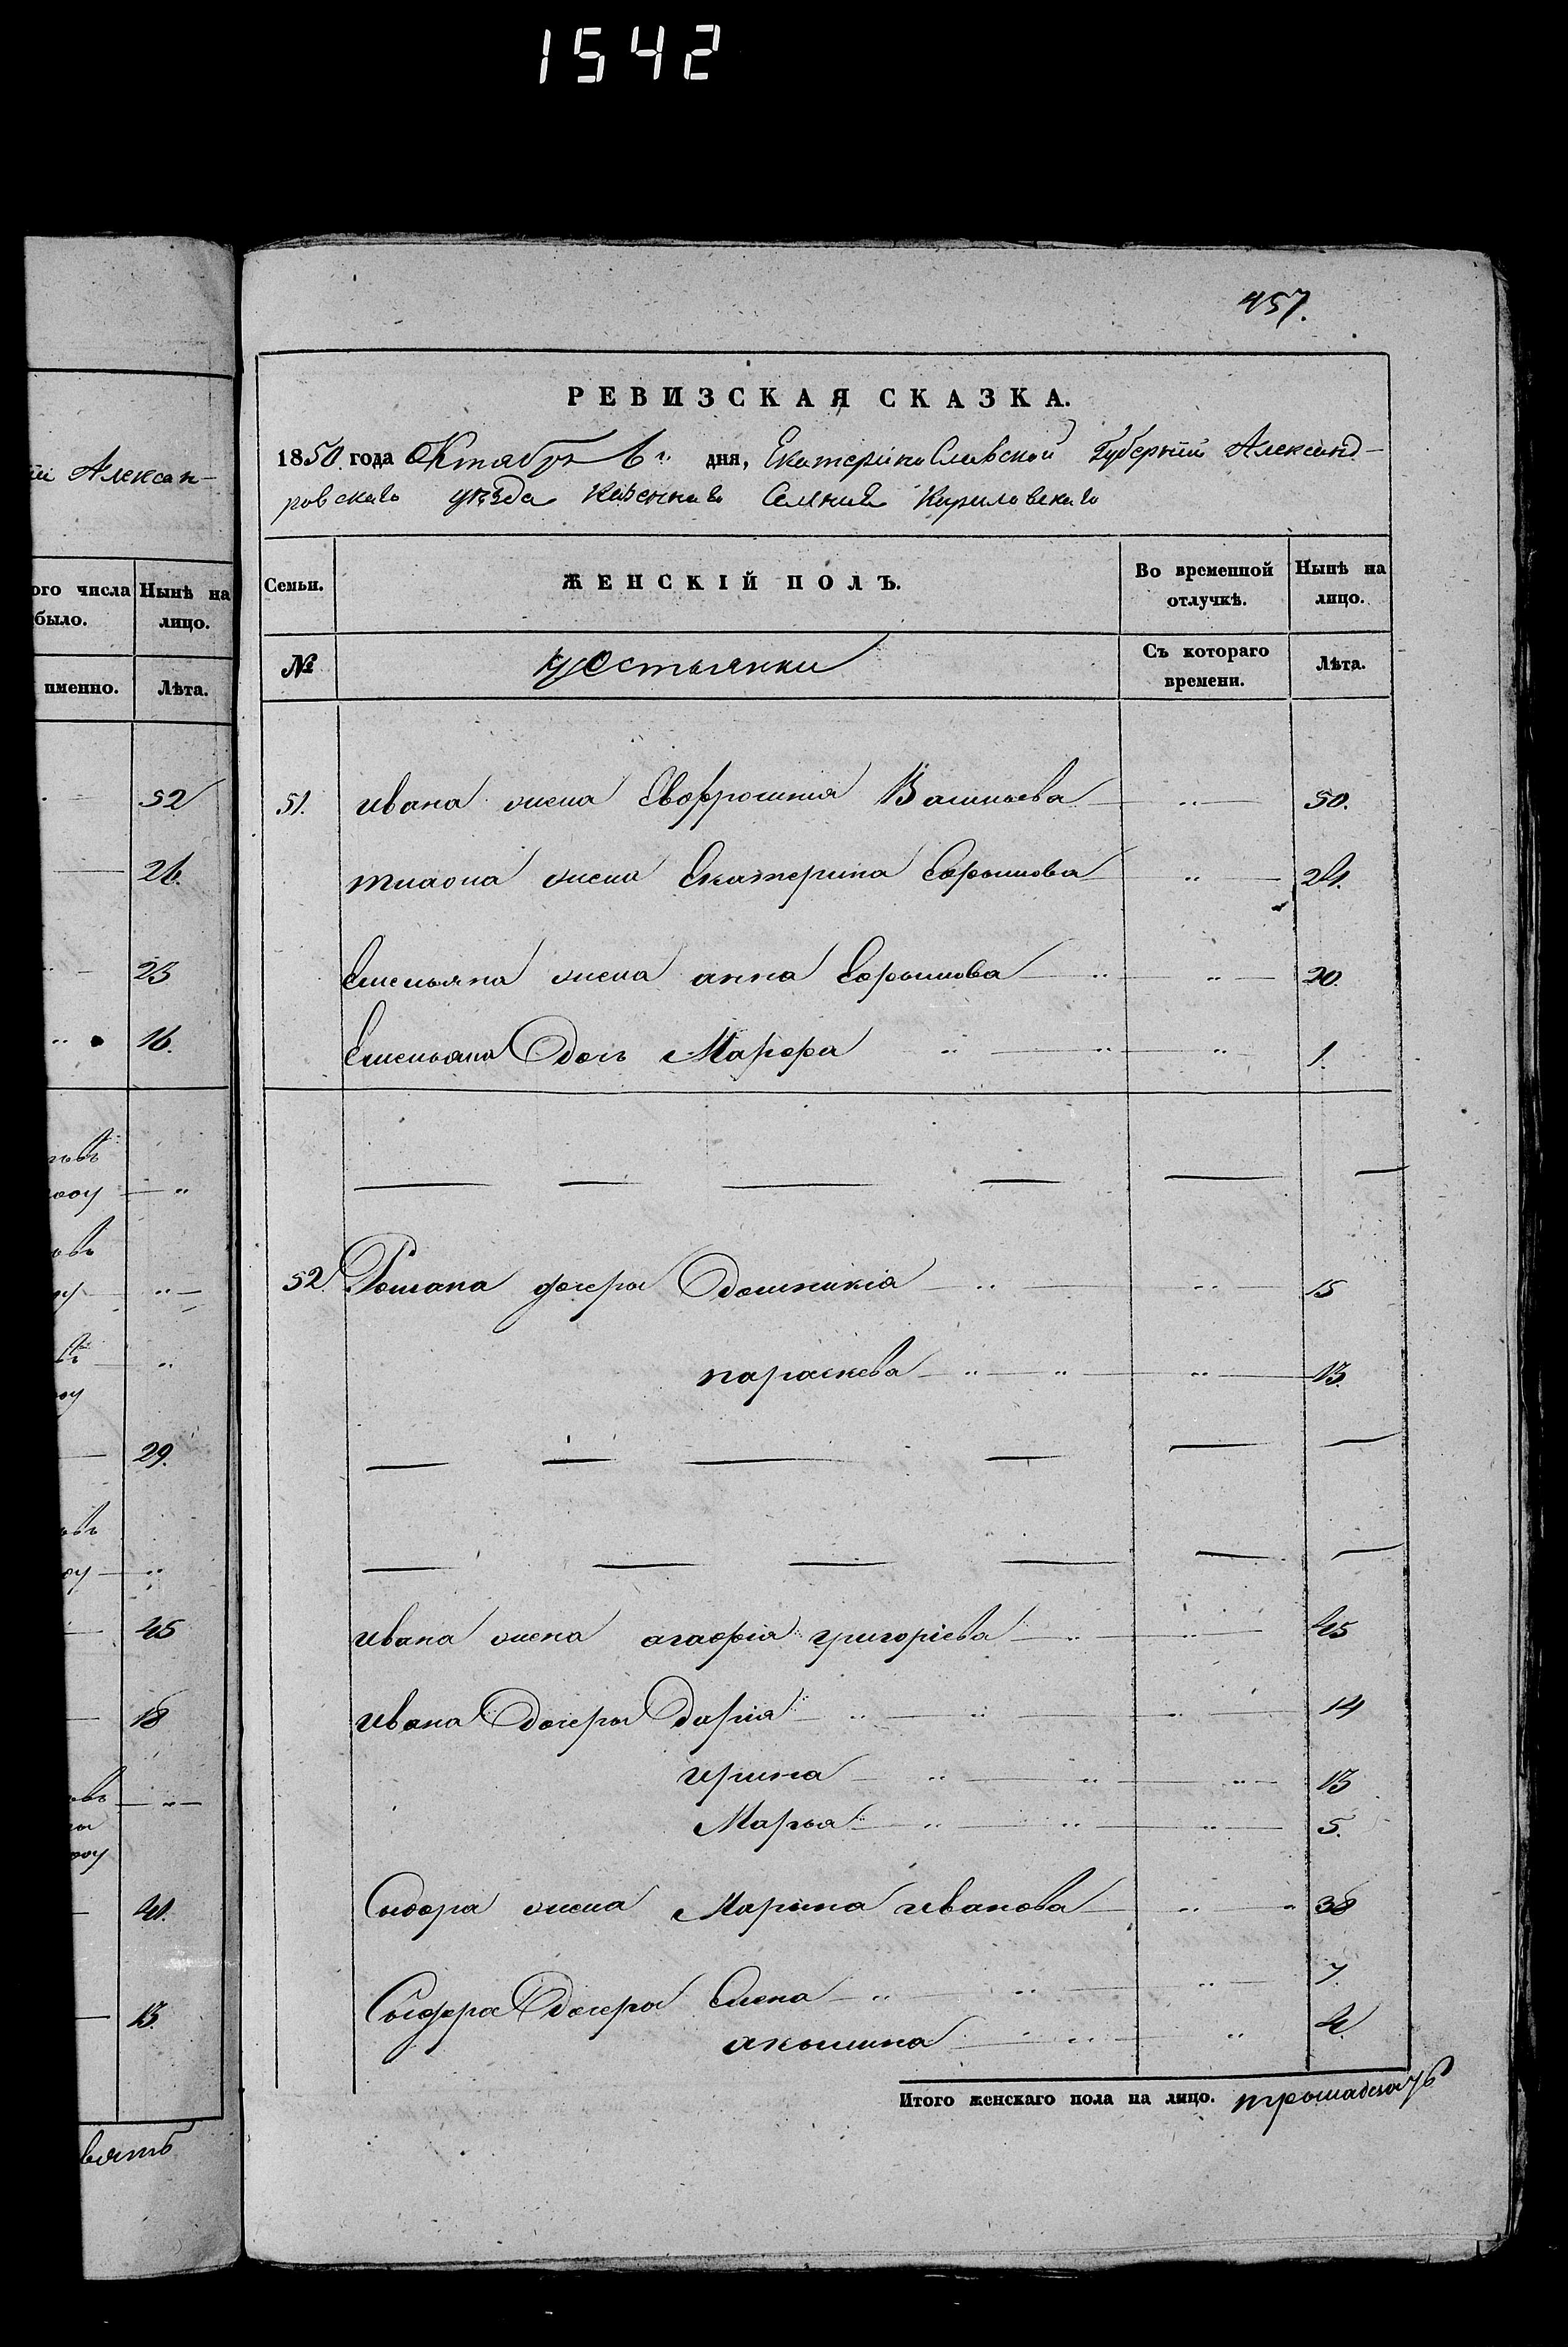 1542
457.
РЕВИЗСКАЯ СКАЗКА.
1850 года Октября 6 дня, Екатеринославской Губерніи Александ-
ровскаго уезда Казеннаго Селения Кириловскаго
Семьи. ЖЕНСКІЙ ПОЛЪ. Во временной отлучкѣ. Нынѣ на лицо.
№ крестьянки Съ котораго времени. Лѣта.
51. ивана жена Евфросинія 50.
жена Екатерина Ефимова
Емельяна жена анна Ефимова 20.
Емельяна Дочь Марфа 1.
52. Романа дочери Домникія 15
параскева 13.
ивана жена агафія григоріева 45
ивана Дочери Дарія 14
ирина 13
Марья 5.
Сидора жена Марина иванова 38
Сидора Дочери Елена 7.
акилина 4
Итого женскаго пола на лицо. тринадцать
ого числа Нынѣ на
было. лицо.
именно. Лѣта.
Алексан-
52
26.
23
16.
29.
45
18
41.
13.
вять